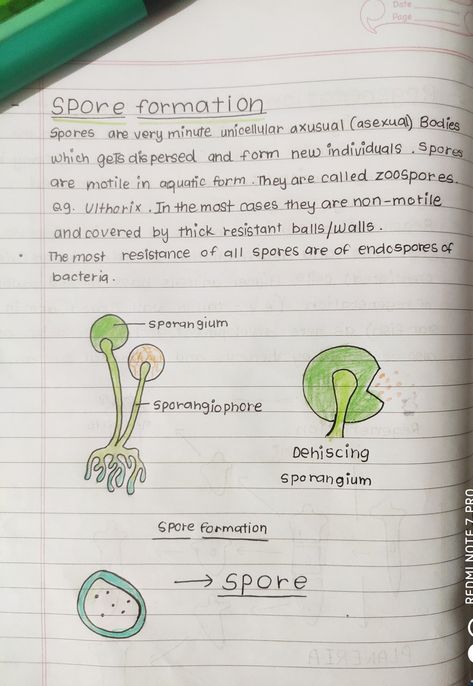 Date
Page
Spore formation
Spores are very minute unicellular axusual (asexual) Bodies
which gets dispersed and form new individuals. Spores
are motile in aquatic form. They are called zoospores.
eg. Ulthorix. In the most cases they are non-motile
and covered by thick resistant balls/walls.
• The most resistance of all spores are of endospores of
bacteria.
sporangium
sporangiophore
Dehiscing
sporangium
spore formation
→ spore
REDMI NOTE 7 PRO